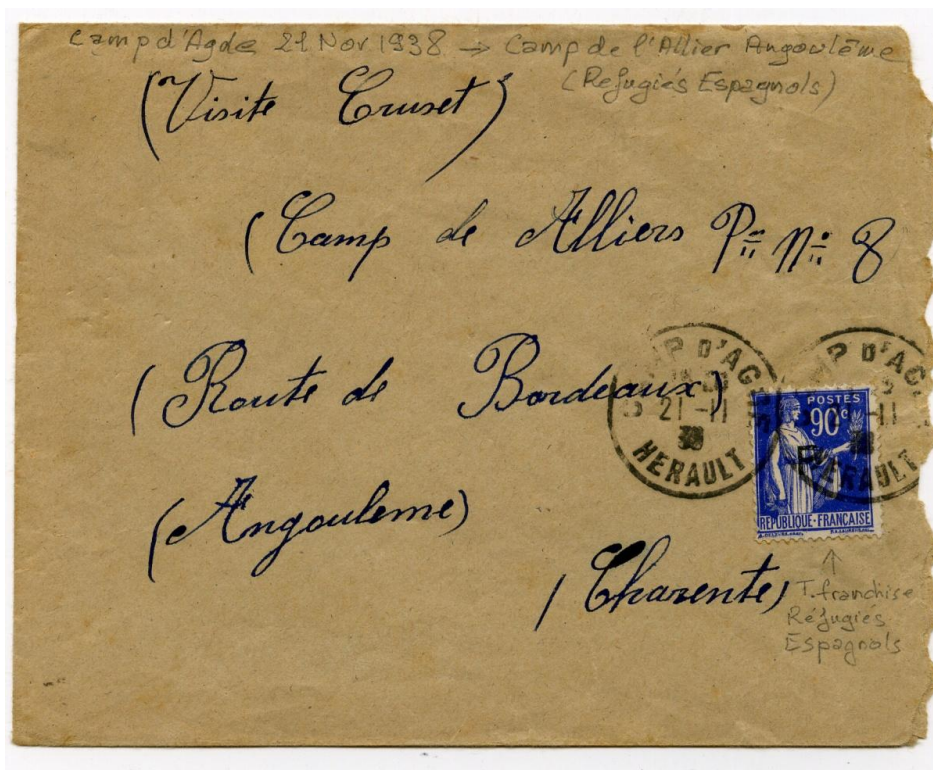 Camp d'Agde 21 Nov 1938 → Camp de l'Allier Angoulême
(Réfugiés Espagnols)
(Visite Cruset)
(Camp de Alliers P= N= 8
(Route de Bordeaux)
(Angouleme)
(Charente)
MP D'AG
21 -11
38
HERAULT
MP D'AG
-11
HERAULT
POSTES
90c
F
REPUBLIQUE-FRANÇAISE
↑
T. franchise
Réfugiés
Espagnols